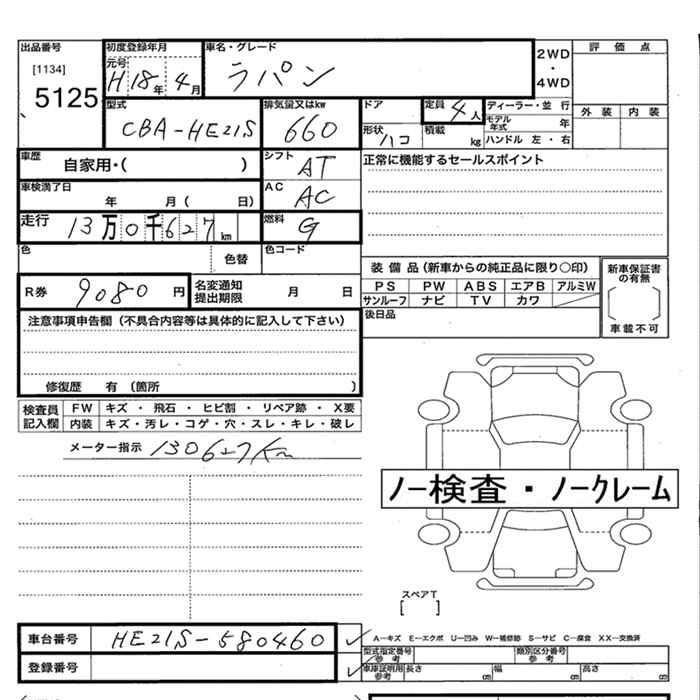 出品番号
[1134]
5125
初度登録年月
元号
H 18年 4月
車名・グレード
ラパン
2WD
・
4WD
評価点
外装 内装
型式
CBA-HE21S
排気量又はkw
660
ドア
定員 4人
形状 ハコ
積載 kg
ディーラー・並行
モデル年式 年
ハンドル 左・右
車歴
自家用・( )
シフト
AT
正常に機能するセールスポイント
車検満了日
年 月( 日)
AC
AC
走行
13万0千627km
燃料
G
色
色替
色コード
R券 9080 円
名変通知
提出期限
月 日
装備品(新車からの純正品に限り○印)
PS PW ABS エアB アルミW
サンルーフ ナビ TV カワ
後日品
新車保証書
の有無
車載不可
注意事項申告欄(不具合内容等は具体的に記入して下さい)
修復歴 有(箇所 )
検査員
記入欄
FW キズ・飛石・ヒビ割・リペア跡・X要
内装 キズ・汚レ・コゲ・穴・スレ・キレ・破レ
メーター指示 130627Km
ノー検査・ノークレーム
スペアT
[ ]
車台番号 HE21S-580460
登録番号
A-キズ E-エクボ U-凹み W-補修跡 S-サビ C-腐食 XX-交換済
型式指定番号
参考
類別区分番号
参考
車庫証明用
参考
長さ cm 幅 cm 高さ cm